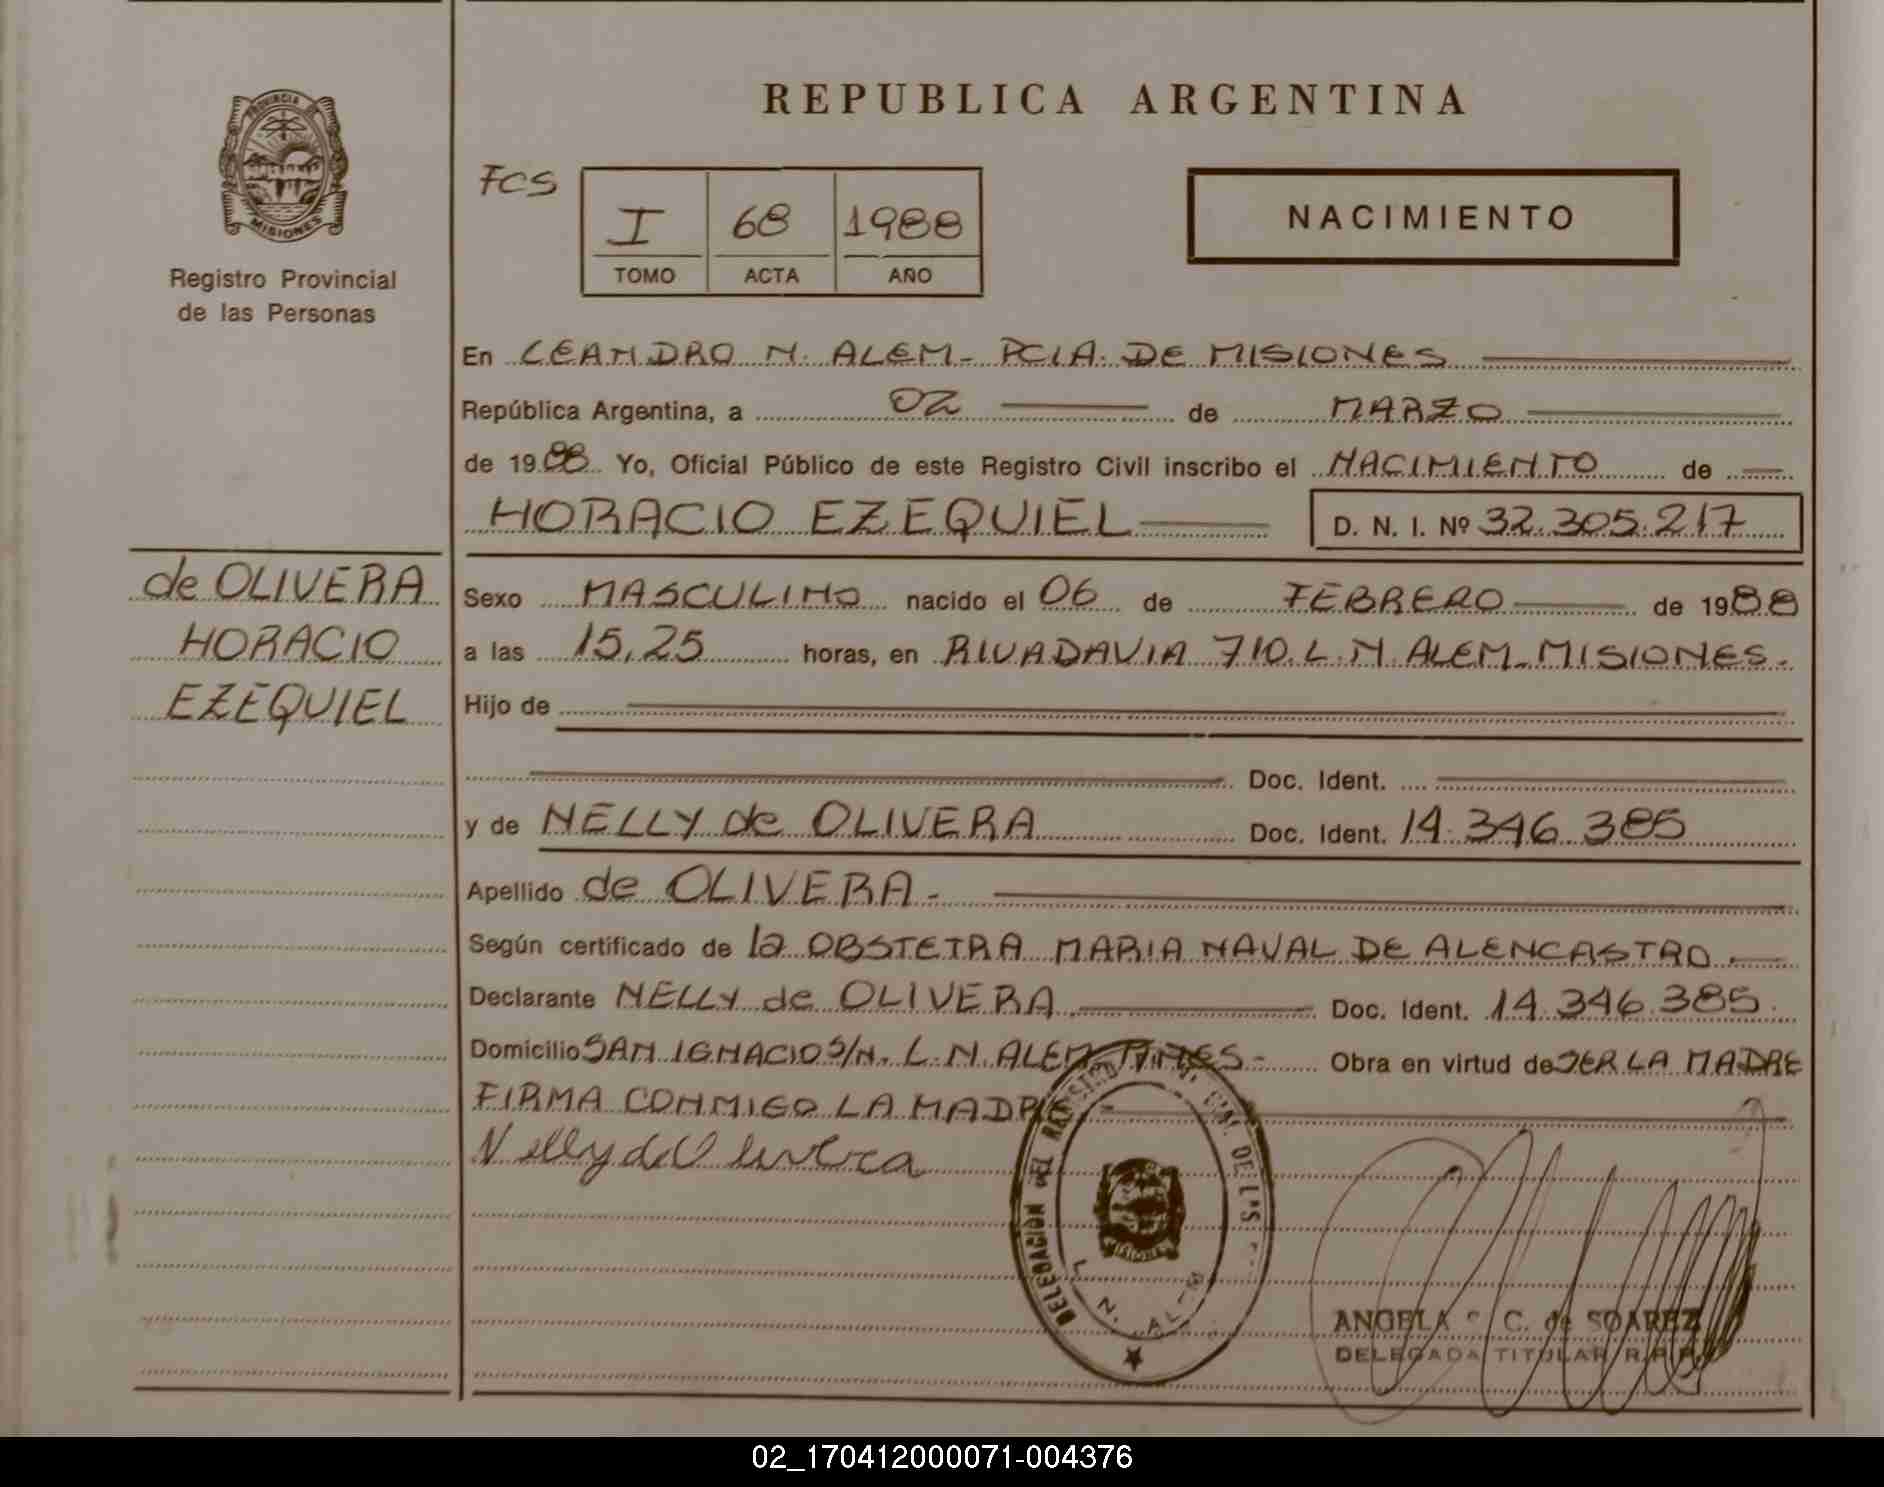 PROVINCIA DE
MISIONES
Registro Provincial
de las Personas
REPUBLICA ARGENTINA
FCS
I 68 1988
TOMO ACTA AÑO
NACIMIENTO
En LEANDRO N. ALEM - PCIA. DE MISIONES
República Argentina, a 02 de MARZO
de 1988 Yo, Oficial Público de este Registro Civil inscribo el NACIMIENTO de
HORACIO EZEQUIEL D. N. I. Nº 32.305.217
de OLIVERA
HORACIO
EZEQUIEL
Sexo MASCULINO nacido el 06 de FEBRERO de 1988
a las 15,25 horas, en RIVADAVIA 710. L. N. ALEM - MISIONES.
Hijo de
Doc. Ident.
y de NELLY de OLIVERA Doc. Ident. 14.346.385
Apellido de OLIVERA -
Según certificado de la OBSTETRA MARIA NAVAL DE ALENCASTRO
Declarante NELLY de OLIVERA Doc. Ident. 14.346.385.
Domicilio SAN IGNACIO S/N. L. N. ALEM Obra en virtud de SER LA MADRE
FIRMA CONMIGO LA MADRE
Nelly de Olivera
DELEGACION DEL REGISTRO DE LAS
MISIONES
L. N. ALEM
ANGELA C. de SOAREZ
DELEGADA TITULAR R.P.P.
02_170412000071-004376